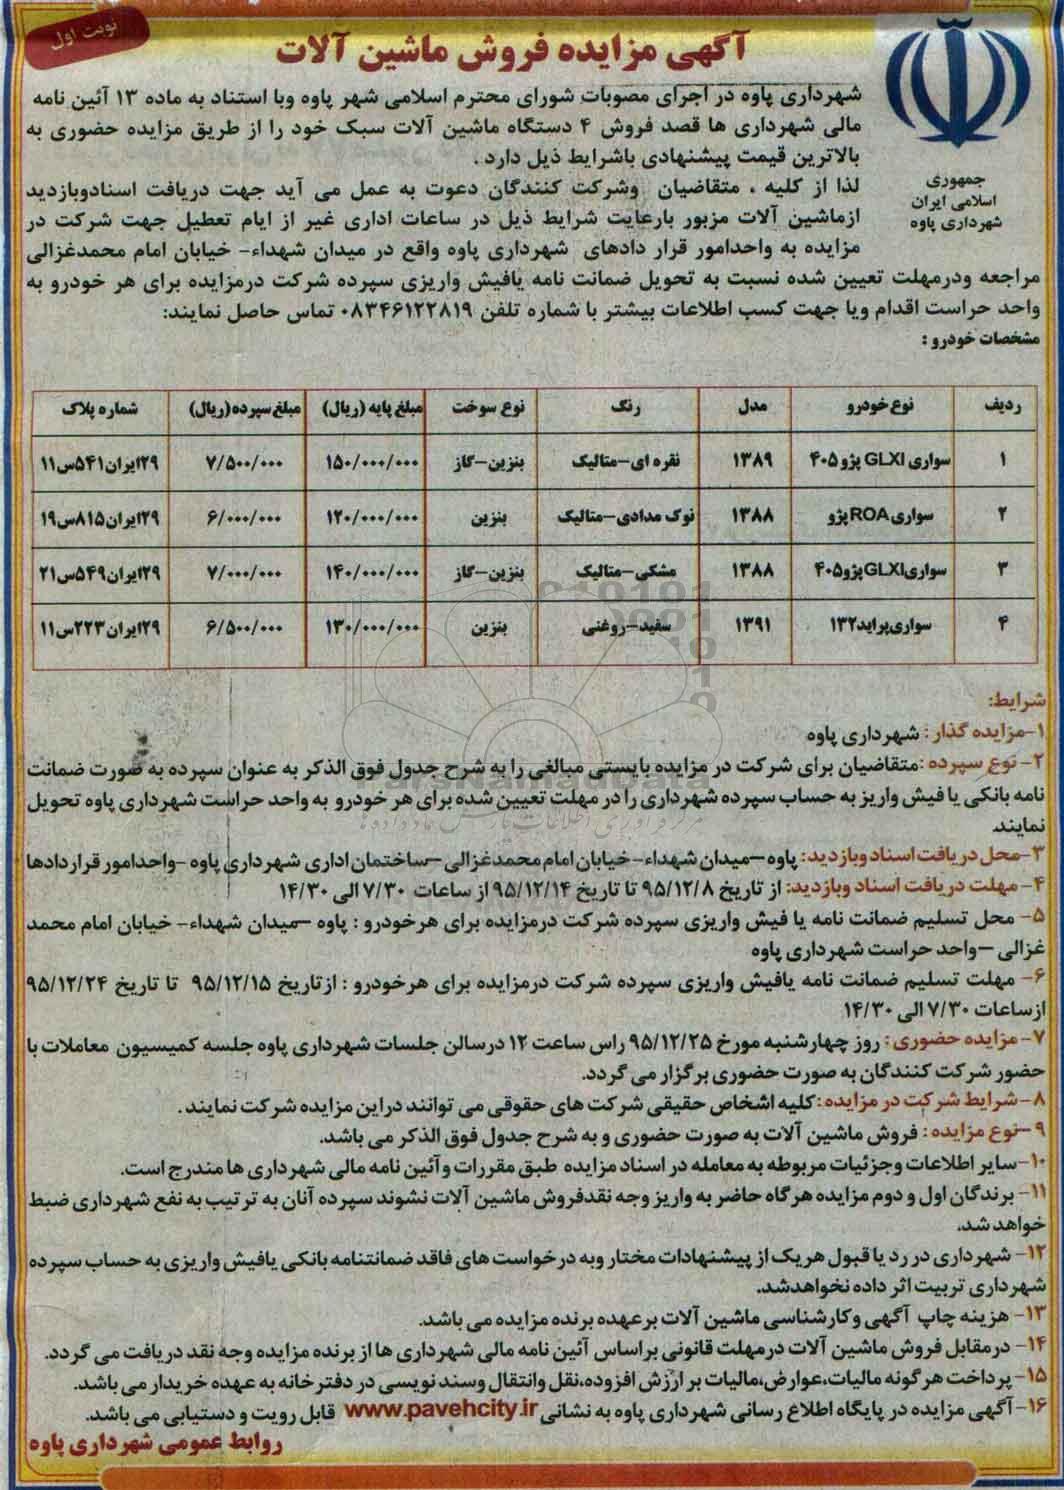 نوبت اول
آگهی مزایده فروش ماشین آلات
جمهوری
اسلامی ایران
شهرداری پاوه
شهرداری پاوه در اجرای مصوبات شورای محترم اسلامی شهر پاوه وبا استناد به ماده ۱۳ آئین نامه
مالی شهرداری ها قصد فروش ۴ دستگاه ماشین آلات سبک خود را از طریق مزایده حضوری به
بالاترین قیمت پیشنهادی باشرایط ذیل دارد .
لذا از کلیه ، متقاضیان وشرکت کنندگان دعوت به عمل می آید جهت دریافت اسنادوبازدید
ازماشین آلات مزبور بارعایت شرایط ذیل در ساعات اداری غیر از ایام تعطیل جهت شرکت در
مزایده به واحدامور قرار دادهای شهرداری پاوه واقع در میدان شهداء- خیابان امام محمدغزالی
مراجعه ودرمهلت تعیین شده نسبت به تحویل ضمانت نامه یافیش واریزی سپرده شرکت درمزایده برای هر خودرو به
واحد حراست اقدام ویا جهت کسب اطلاعات بیشتر با شماره تلفن ۰۸۳۴۶۱۲۲۸۱۹ تماس حاصل نمایند:
مشخصات خودرو :
ردیف نوع خودرو مدل رنگ نوع سوخت مبلغ پایه (ریال) مبلغ سپرده(ریال) شماره پلاک
۱ سواری GLXI پژو ۴۰۵ ۱۳۸۹ نقره ای-متالیک بنزین-گاز ۱۵۰/۰۰۰/۰۰۰ ۷/۵۰۰/۰۰۰ ۲۹ایران۵۴۱س۱۱
۲ سواری ROAپژو ۱۳۸۸ نوک مدادی-متالیک بنزین ۱۲۰/۰۰۰/۰۰۰ ۶/۰۰۰/۰۰۰ ۲۹ایران۸۱۵س۱۹
۳ سواریGLXIپژو۴۰۵ ۱۳۸۸ مشکی-متالیک بنزین-گاز ۱۴۰/۰۰۰/۰۰۰ ۷/۰۰۰/۰۰۰ ۲۹ایران۵۴۹س۲۱
۴ سواری‌پراید۱۳۲ ۱۳۹۱ سفید-روغنی بنزین ۱۳۰/۰۰۰/۰۰۰ ۶/۵۰۰/۰۰۰ ۲۹ایران۲۲۳س۱۱
شرایط:
۱-مزایده گذار : شهرداری پاوه
۲- نوع سپرده :متقاضیان برای شرکت در مزایده بایستی مبالغی را به شرح جدول فوق الذکر به عنوان سپرده به صورت ضمانت
نامه بانکی یا فیش واریز به حساب سپرده شهرداری را در مهلت تعیین شده برای هر خودرو به واحد حراست شهرداری پاوه تحویل
نمایند.
۳-محل دریافت اسناد وبازدید: پاوه-میدان شهداء- خیابان امام محمدغزالی -ساختمان اداری شهرداری پاوه -واحدامور قراردادها
۴- مهلت دریافت اسناد وبازدید: از تاریخ ۹۵/۱۲/۸ تا تاریخ ۹۵/۱۲/۱۴از ساعات ۷/۳۰ الی ۱۴/۳۰
۵- محل تسلیم ضمانت نامه یا فیش واریزی سپرده شرکت درمزایده برای هرخودرو : پاوه -میدان شهداء- خیابان امام محمد
غزالی -واحد حراست شهرداری پاوه
۶- مهلت تسلیم ضمانت نامه یافیش واریزی سپرده شرکت درمزایده برای هرخودرو : ازتاریخ ۹۵/۱۲/۱۵ تا تاریخ ۹۵/۱۲/۲۴
ازساعات ۷/۳۰ الی ۱۴/۳۰
۷- مزایده حضوری : روز چهارشنبه مورخ ۹۵/۱۲/۲۵ راس ساعت ۱۲ درسالن جلسات شهرداری پاوه جلسه کمیسیون معاملات با
حضور شرکت کنندگان به صورت حضوری برگزار می گردد.
۸- شرایط شرکت در مزایده :کلیه اشخاص حقیقی شرکت های حقوقی می توانند دراین مزایده شرکت نمایند .
۹-نوع مزایده : فروش ماشین آلات به صورت حضوری و به شرح جدول فوق الذکر می باشد.
۱۰-سایر اطلاعات وجزئیات مربوطه به معامله در اسناد مزایده طبق مقررات وآئین نامه مالی شهرداری ها مندرج است.
۱۱- برندگان اول و دوم مزایده هرگاه حاضر به واریز وجه نقدفروش ماشین آلات نشوند سپرده آنان به ترتیب به نفع شهرداری ضبط
خواهد شد.
۱۲- شهرداری در رد یا قبول هریک از پیشنهادات مختار وبه درخواست های فاقد ضمانتنامه بانکی یافیش واریزی به حساب سپرده
شهرداری تربیت اثر داده نخواهدشد.
۱۳- هزینه چاپ آگهی وکارشناسی ماشین آلات برعهده برنده مزایده می باشد.
۱۴- درمقابل فروش ماشین آلات درمهلت قانونی براساس آئین نامه مالی شهرداری ها از برنده مزایده وجه نقد دریافت می گردد.
۱۵- پرداخت هرگونه مالیات،عوارض،مالیات بر ارزش افزوده،نقل وانتقال وسند نویسی در دفترخانه به عهده خریدار می باشد.
۱۶-آگهی مزایده در پایگاه اطلاع رسانی شهرداری پاوه به نشانی www.pavehcity.ir قابل رویت و دستیابی می باشد.
روابط عمومی شهرداری پاوه